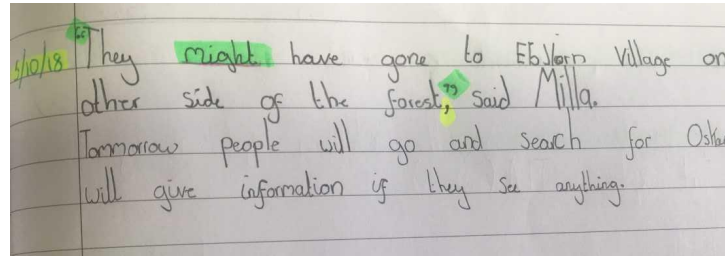 5/10/18 "They might have gone to Village on
other side of the forest," said Milla.
Tommorrow people will go and search for Oska
will give information if they see anything.